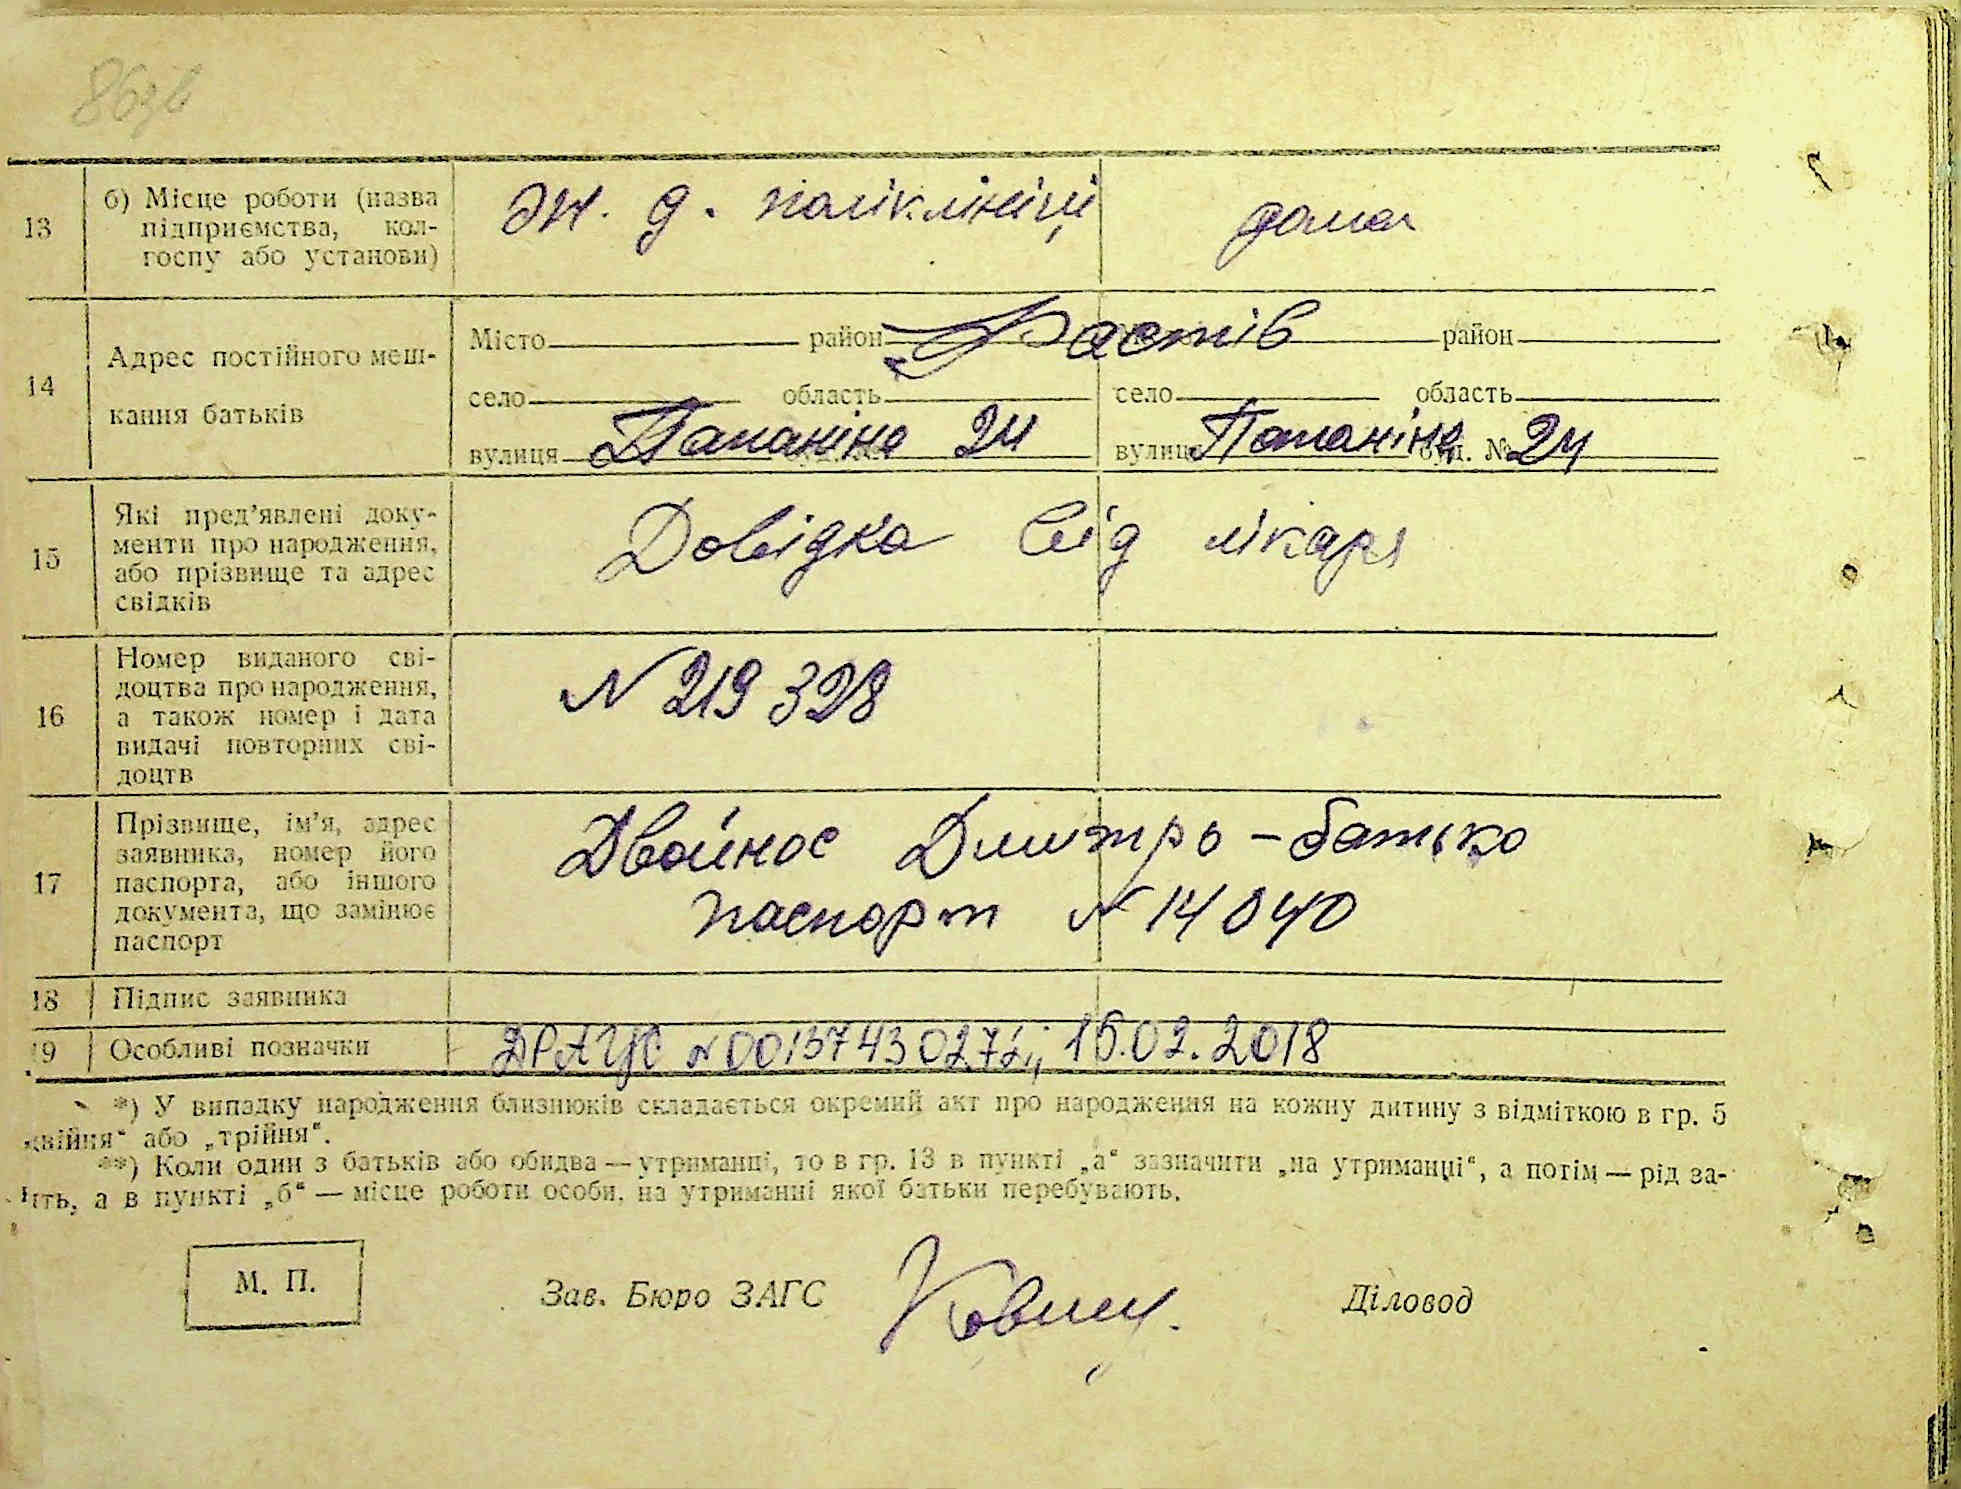 86зв
13 б) Місце роботи (назва
підприємства, кол-
госпу або установи)
Ж. д. поліклініці дома
14 Адрес постійного меш-
кання батьків
Місто район Фастів район
село область село область
вулиця Папаніна 24 вулиця Папаніна буд. № 24
15 Які пред’явлені доку-
менти про народження,
або прізвище та адрес
свідків
Довідка від лікаря
16 Номер виданого сві-
доцтва про народження,
а також номер і дата
видачі повторних сві-
доцтв
N 219328
17 Прізвище, ім’я, адрес
заявника, номер його
паспорта, або іншого
документа, що замінює
паспорт
Двойнос Дмитро – батько
паспорт N 14040
18 Підпис заявника
19 Особливі позначки
ДРАЦС 15.02.2018
*) У випадку народження близнюків складається окремий акт про народження на кожну дитину з відміткою в гр. 5
двійня“ або „трійня“.
**) Коли один з батьків або обидва — утриманці, то в гр. 13 в пункті „а“ зазначити „на утриманці“, а потім — рід за-
нять, а в пункті „б“ — місце роботи особи, на утриманні якої батьки перебувають.
М. П. Зав. Бюро ЗАГС Діловод